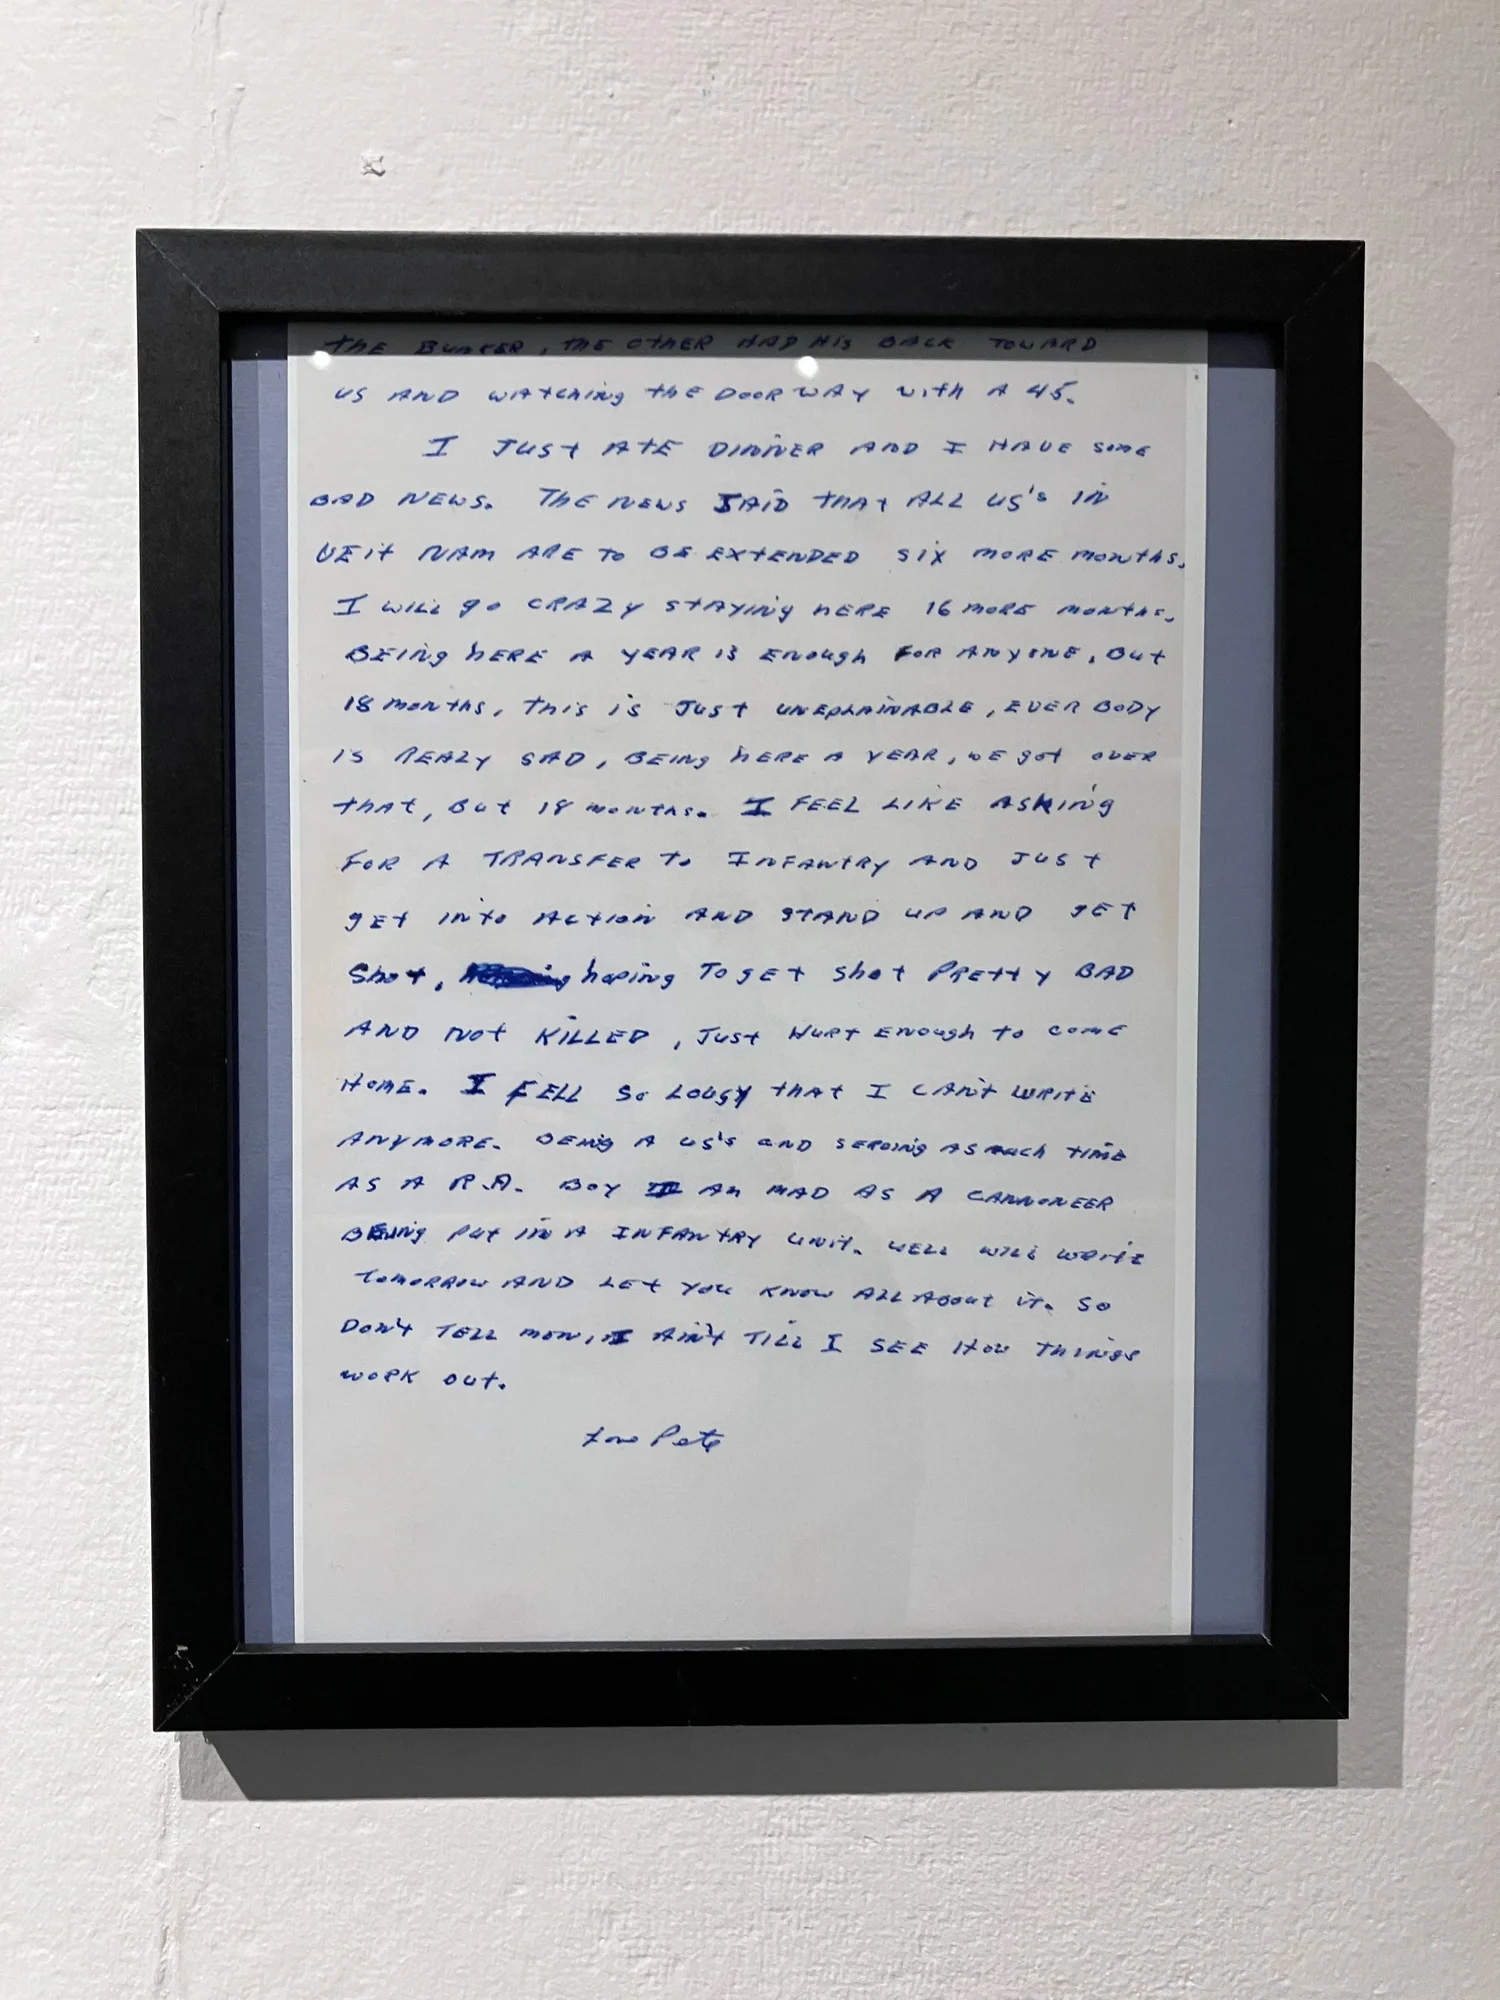 THE BUNKER, THE OTHER HAD HIS BACK TOWARD
US AND WATCHING THE DOOR WAY WITH A 45.
I JUST ATE DINNER AND I HAVE SOME
BAD NEWS. THE NEWS SAID THAT ALL US'S IN
VEIT NAM ARE TO BE EXTENDED SIX MORE MONTHS.
I WILL GO CRAZY STAYING HERE 16 MORE MONTHS.
BEING HERE A YEAR IS ENOUGH FOR ANYONE, BUT
18 MONTHS, THIS IS JUST UNEPLAINABLE, EVER BODY
IS REALY SAD, BEING HERE A YEAR, WE GOT OVER
THAT, BUT 18 MONTHS. I FEEL LIKE ASKING
FOR A TRANSFER TO INFANTRY AND JUST
GET INTO ACTION AND STAND UP AND GET
SHOT, HOPING TO GET SHOT PRETTY BAD
AND NOT KILLED, JUST HURT ENOUGH TO COME
HOME. I FELL SO LOUSY THAT I CAN'T WRITE
ANYMORE. BEING A US'S AND SERVING AS MUCH TIME
AS A R.A. BOY AM MAD AS A CANNONEER
BEING PUT IN A INFANTRY UNIT. WELL WILL WRITE
TOMORROW AND LET YOU KNOW ALL ABOUT IT. SO
DON'T TELL MOM, I AIN'T TILL I SEE HOW THINGS
WORK OUT.
Love Pete